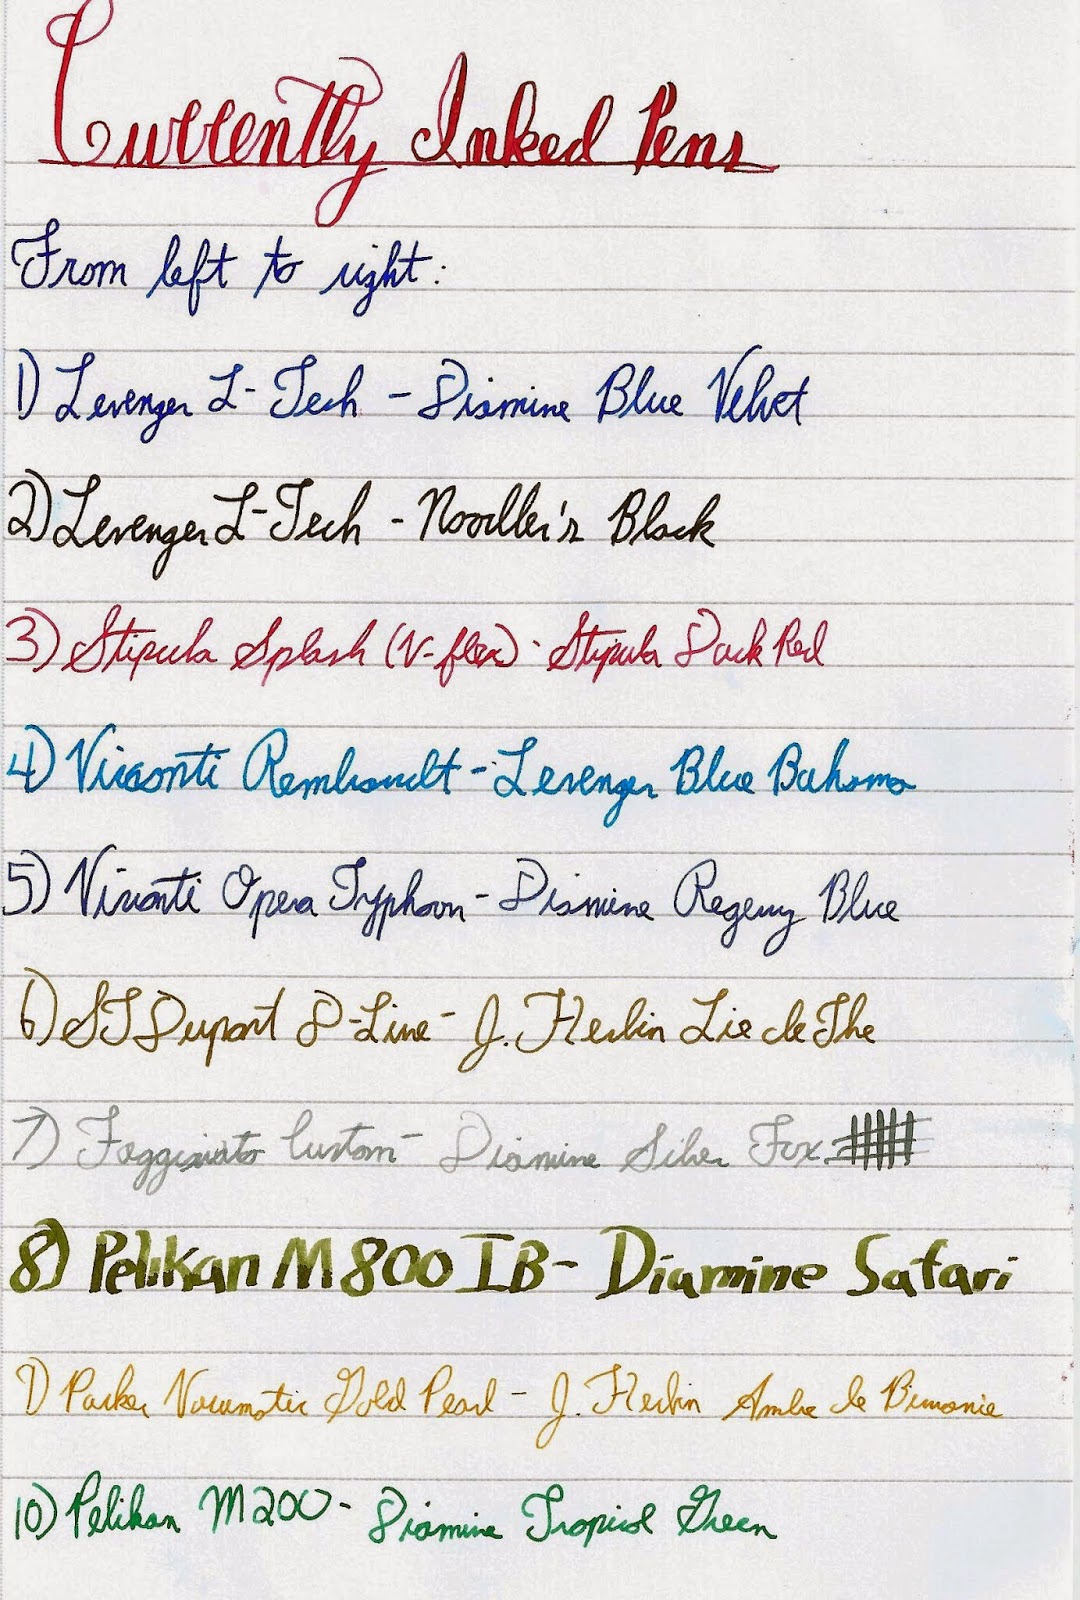 Currently Inked Pens
From left to right:
1) Levenger L-Tech - Diamine Blue Velvet
2) Levenger L-Tech - Noodler's Black
3) Stipula Splash (V-flex) - Stipula Dark Red
4) Visconti Rembrandt - Levenger Blue Bahama
5) Visconti Opera Typhoon - Diamine Regency Blue
6) ST Dupont D-Line - J. Herbin Lie de The
7) Faggionato Custom - Diamine Silver Fox
8) Pelikan M800 IB - Diamine Safari
9) Parker Vacumatic Gold Pearl - J. Herbin Ambre de Birmanie
10) Pelikan M200 - Diamine Tropical Green